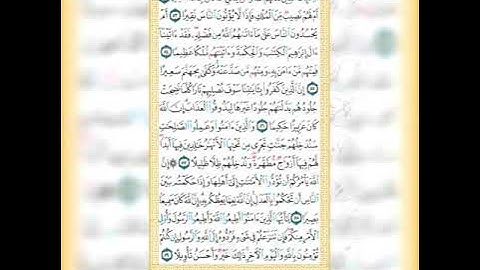 أَمْ لَهُمْ نَصِيبٌ مِنَ الْمُلْكِ فَإِذًا لَا يُؤْتُونَ النَّاسَ نَقِيرًا ٥٣ أَمْ
يَحْسُدُونَ النَّاسَ عَلَىٰ مَا آتَاهُمُ اللَّهُ مِنْ فَضْلِهِ فَقَدْ آتَيْنَا
آلَ إِبْرَاهِيمَ الْكِتَابَ وَالْحِكْمَةَ وَآتَيْنَاهُمْ مُلْكًا عَظِيمًا ٥٤
فَمِنْهُمْ مَنْ آمَنَ بِهِ وَمِنْهُمْ مَنْ صَدَّ عَنْهُ وَكَفَىٰ بِجَهَنَّمَ سَعِيرًا
٥٥ إِنَّ الَّذِينَ كَفَرُوا بِآيَاتِنَا سَوْفَ نُصْلِيهِمْ نَارًا كُلَّمَا نَضِجَتْ
جُلُودُهُمْ بَدَّلْنَاهُمْ جُلُودًا غَيْرَهَا لِيَذُوقُوا الْعَذَابَ إِنَّ اللَّهَ
كَانَ عَزِيزًا حَكِيمًا ٥٦ وَالَّذِينَ آمَنُوا وَعَمِلُوا الصَّالِحَاتِ
سَنُدْخِلُهُمْ جَنَّاتٍ تَجْرِي مِنْ تَحْتِهَا الْأَنْهَارُ خَالِدِينَ فِيهَا أَبَدًا
لَهُمْ فِيهَا أَزْوَاجٌ مُطَهَّرَةٌ وَنُدْخِلُهُمْ ظِلًّا ظَلِيلًا ٥٧ ۞ إِنَّ
اللَّهَ يَأْمُرُكُمْ أَنْ تُؤَدُّوا الْأَمَانَاتِ إِلَىٰ أَهْلِهَا وَإِذَا حَكَمْتُمْ بَيْنَ
النَّاسِ أَنْ تَحْكُمُوا بِالْعَدْلِ إِنَّ اللَّهَ نِعِمَّا يَعِظُكُمْ بِهِ إِنَّ اللَّهَ كَانَ سَمِيعًا
بَصِيرًا ٥٨ يَا أَيُّهَا الَّذِينَ آمَنُوا أَطِيعُوا اللَّهَ وَأَطِيعُوا الرَّسُولَ وَأُولِي
الْأَمْرِ مِنْكُمْ فَإِنْ تَنَازَعْتُمْ فِي شَيْءٍ فَرُدُّوهُ إِلَى اللَّهِ وَالرَّسُولِ إِنْ كُنْتُمْ
تُؤْمِنُونَ بِاللَّهِ وَالْيَوْمِ الْآخِرِ ذَٰلِكَ خَيْرٌ وَأَحْسَنُ تَأْوِيلًا ٥٩